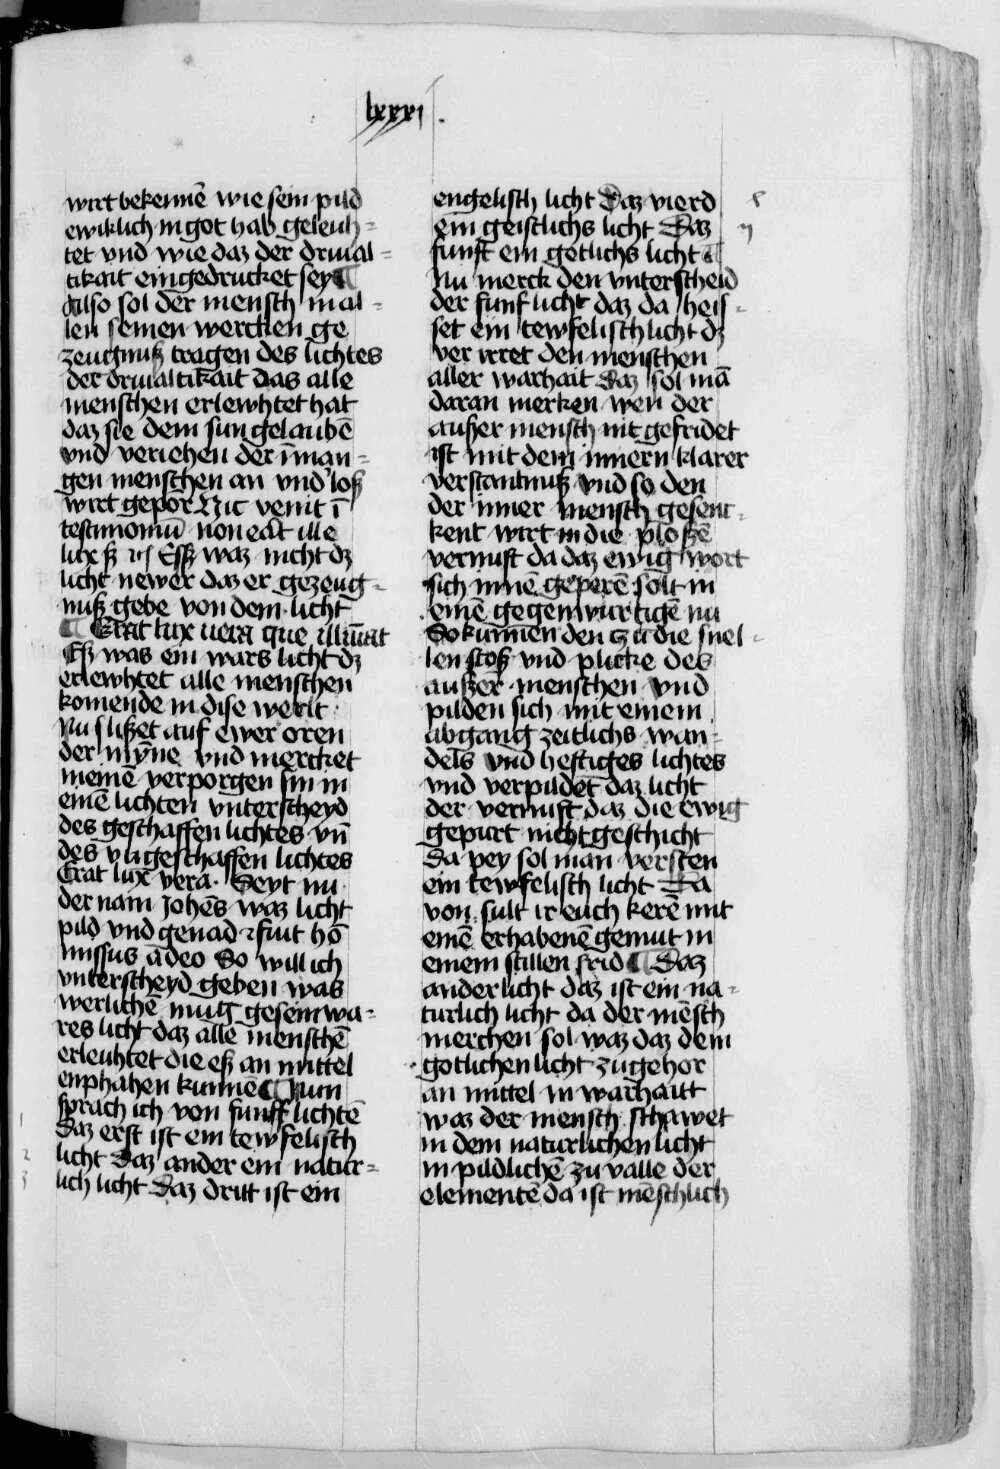 lxxxi
wirt bekennē wie sein pild
ewiklich in got hab geleuh=
tet vnd wie daz der driual=
tikait eingedrucket sey ¶
Also sol der mensch in al=
len seinen wercken ge
zeugnuß tragen des lichtes
der driualtikait das alle
menschen erlewhtet hat
daz sie dem sun gelaubē
vnd veriehen der īman=
gen menschen an vnd' loß
wirt gepor Hic venit ī
testimoniū non eāt ille
lux ß Eſß waz nicht dz
licht newer daz er gezeug=
nuß gebe von dem licht
¶ Erat lux uera que illūıat
Eß was ein wars licht dz
erlewhtet alle menschen
komende in dise werlt
Nu slißet auf ewer oren
der mȳne vnd mercket
meinē verporgen sin in
einē lichten vnterscheyd
des geschaffen lichtes vn̄
des vngeschaffen lichtes
Erat lux vera. Seyt nu
der nam Johēs waz licht
pild vnd genad fuit hō
missus ā deo So will ich
vnterscheyd geben was
werlichē mug gesein wa=
res licht daz alle menschē
erleuhtet die eß an mittel
enphahen kunnē ¶ Nun
sprach ich von funff lichtē
Daz erst ist ein tewfelisch
licht Daz ander ein natur=
lich licht Daz dritt ist ein
engelisch licht Daz vierd
ein geistlichs licht Daz
funft ein gotlichs licht ¶
Nu merck den vnterscheid
der funf licht daz da heis=
set ein tewfelisch licht dz
ver irret den menschen
aller warhait Daz sol mā
daran merken wen der
außer mensch nit gefridet
ist mit dem innern klarer
verstantnuß vnd so den
der inner mensch gesenc=
kent wirt in die ploßē
vernuft da daz ewig wort
sich innē geperē solt in
einē gegenwurtigē nu
So kummen den tzu die snel=
len stoß vnd plicke des
außer menschen vnd
pilden sich mit einem
abgang zeitlichs wan=
dels vnd heftiges lichtes
vnd verpildet daz licht
der vernuft daz die ewig
gepurt nicht geschicht
Da pey sol man versten
ein tewfelisch licht Da
von sult ir euch kerē mit
einē erhabenē gemut in
einem stillen frid ¶ Daz
ander licht daz ist ein na=
turlich licht da der mēsch
merchen sol waz daz dem
gotlichen licht zugehor
an mittel in warhaitt
waz der mensch schawet
in dem naturlichen licht
in pildlichē zu valle der
elementē da ist mēschlich